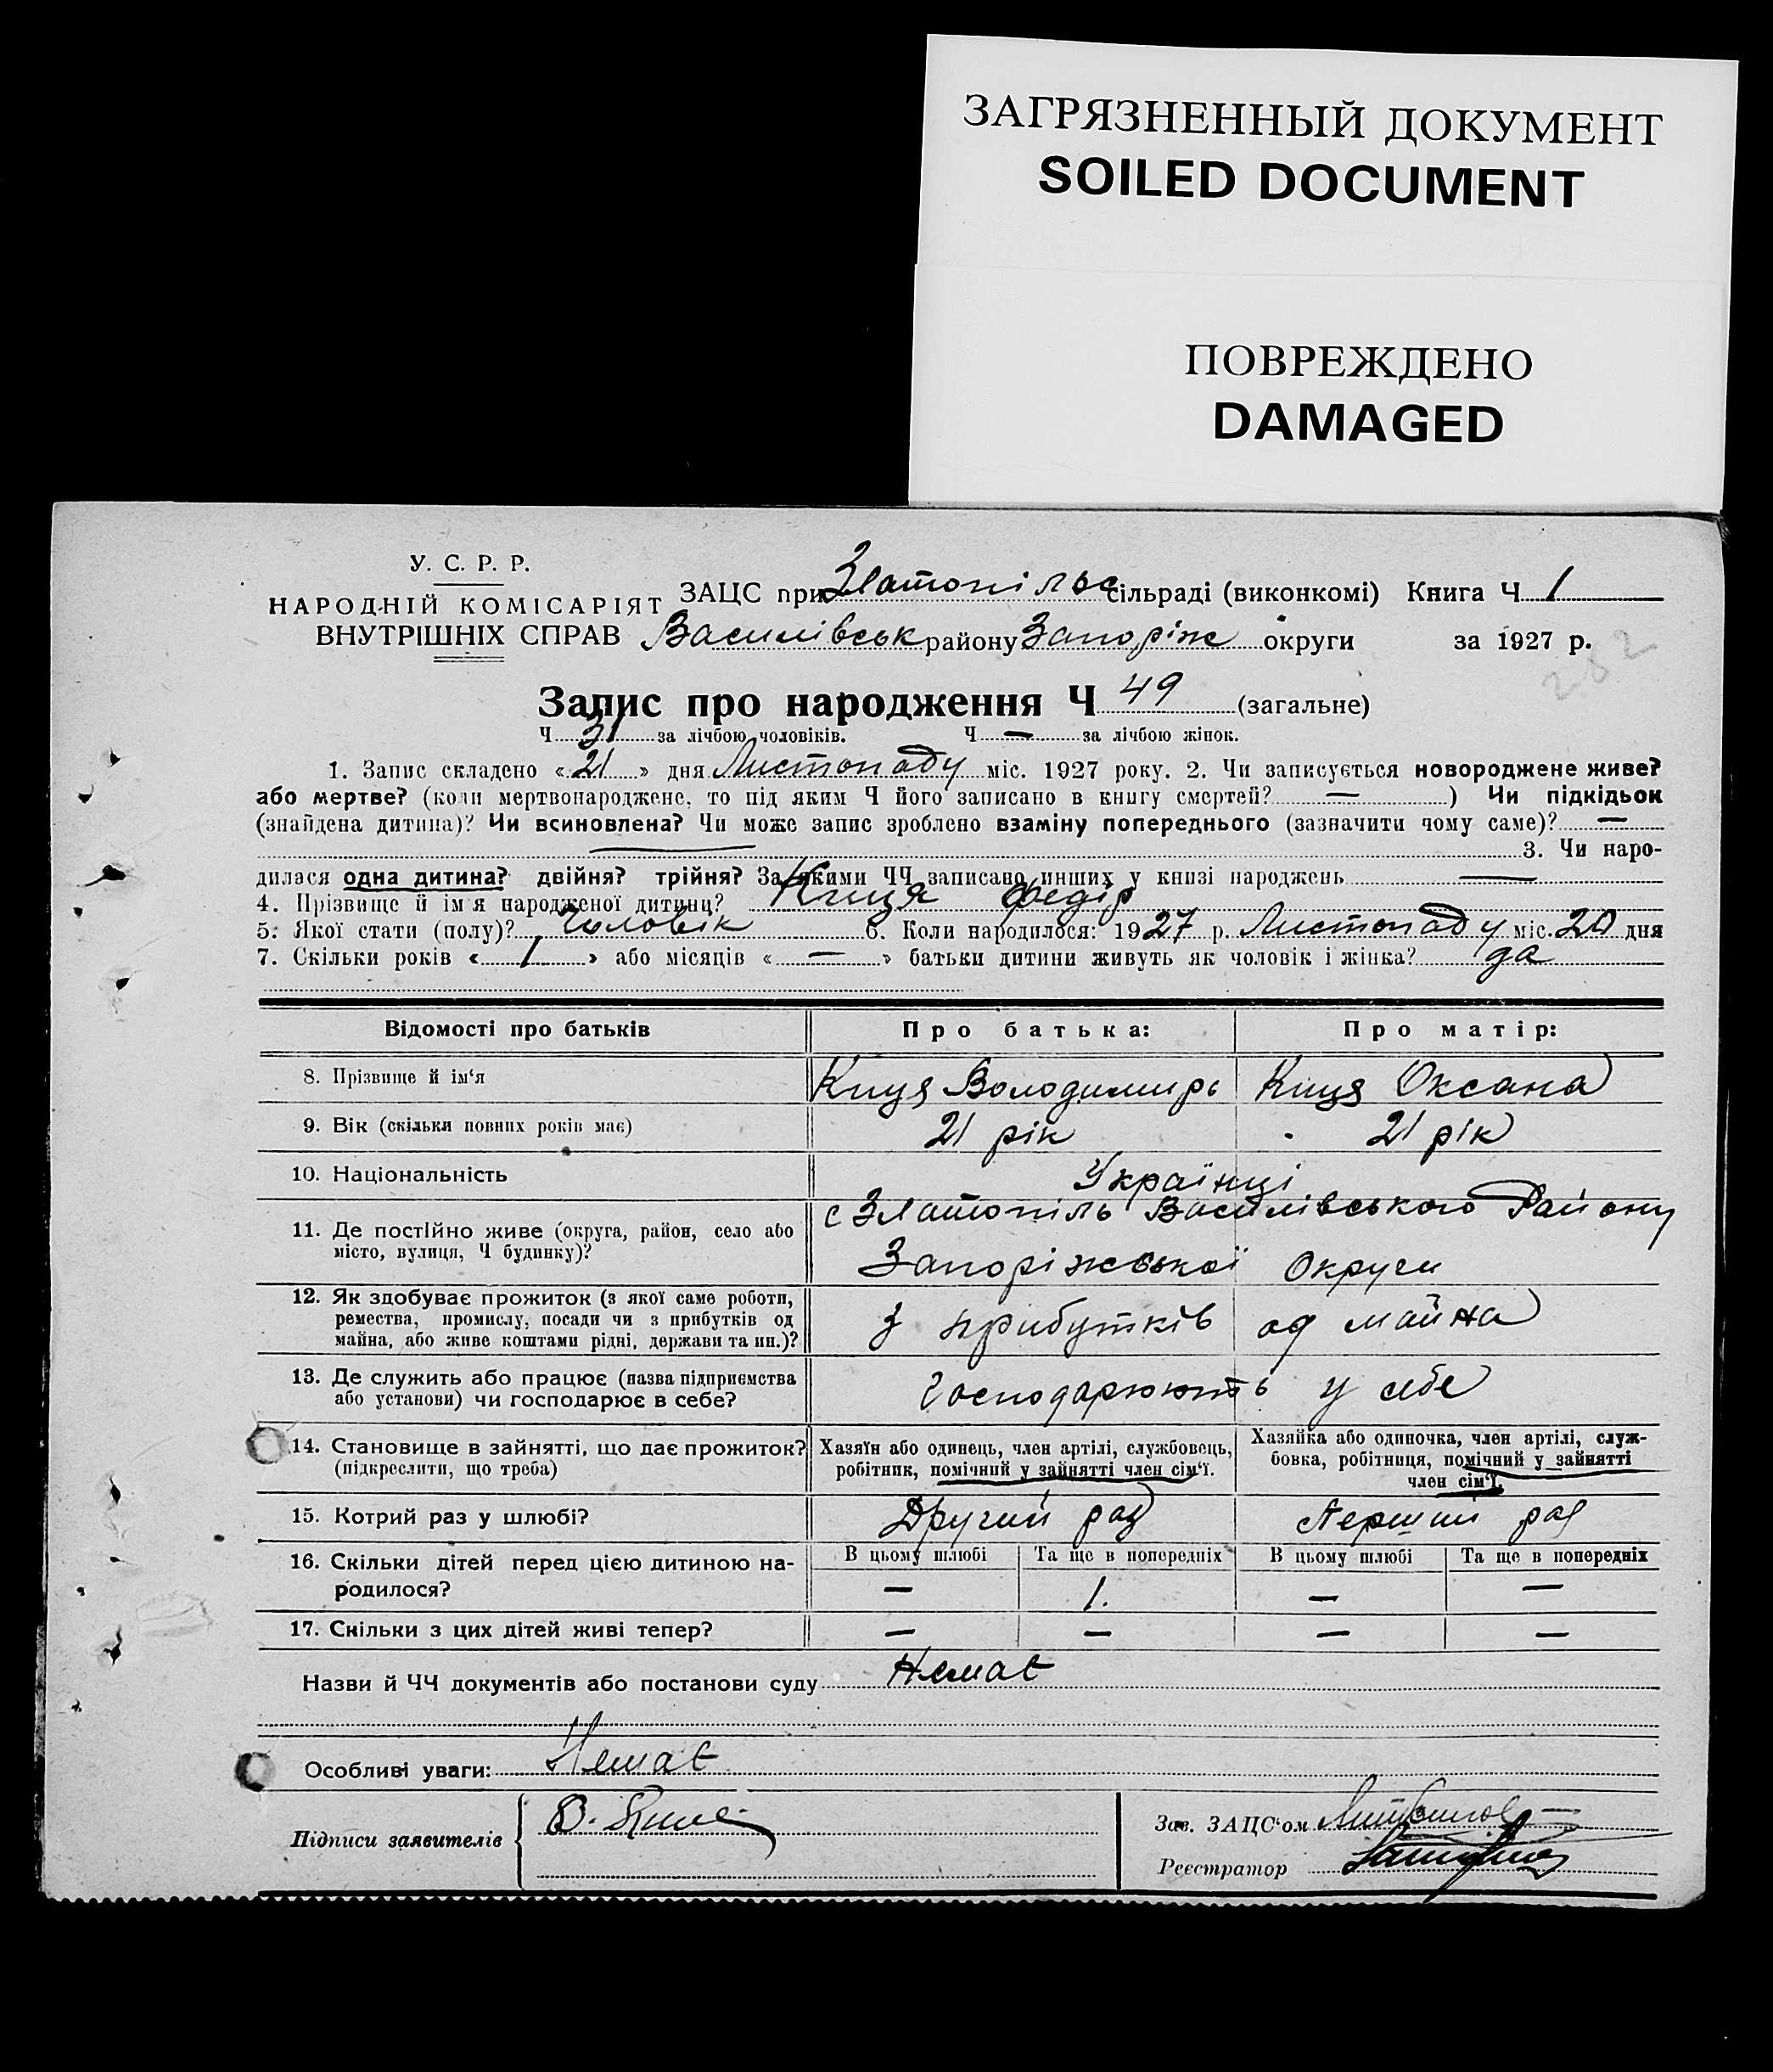 ЗАГРЯЗНЕННЫЙ ДОКУМЕНТ
SOILED DOCUMENT
ПОВРЕЖДЕНО
DAMAGED
У. С. Р. Р.
НАРОДНІЙ КОМІСАРІЯТ
ВНУТРІШНІХ СПРАВ
ЗАЦС при Златопільс сільраді (виконкомі) Книга Ч 1
Василівськ району Запоріж округи за 1927 р.
202
Запис про народження Ч 49 (загальне)
Ч 31 за лічбою чоловіків. Ч — за лічбою жінок.
1. Запис складено « 21 » дня Листопаду міс. 1927 року. 2. Чи записується новороджене живе?
або мертве? (коли мертвонароджене, то під яким Ч його записано в книгу смертей? — ) Чи підкідьок
(знайдена дитина)? Чи всиновлена? Чи може запис зроблено взаміну попереднього (зазначити чому саме)? —
3. Чи наро-
дилася одна дитина? двійня? трійня? За якими ЧЧ записано инших у книзі народжень —
4. Прізвище й імя народженої дитини? Киця Федір
5. Якої стати (полу)? Чоловік 6. Коли народилося: 1927 р. Листопаду міс. 20 дня
7. Скільки років « 1 » або місяців « — » батьки дитини живуть як чоловік і жінка? да
Відомості про батьків Про батька: Про матір:
8. Прізвище й ім‘я Киця Володимирь Киця Оксана
9. Вік (скільки повних років має) 21 рік 21 рік
10. Національність Українці
11. Де постійно живе (округа, район, село або
місто, вулиця, Ч будинку)?
с Златопіль Василівського Району
Запоріжської Округи
12. Як здобуває прожиток (з якої саме роботи,
ремества, промислу, посади чи з прибутків од
майна, або живе коштами рідні, держави та ин.)?
з прибутків од майна
13. Де служить або працює (назва підприємства
або установи) чи господарює в себе?
Господарюють у себе
14. Становище в зайнятті, що дає прожиток?
(підкреслити, що треба)
Хазяїн або одинець, член артілі, службовець,
робітник, помічний у зайнятті член сім‘ї.
Хазяйка або одиночка, член артілі, служ-
бовка, робітниця, помічний у зайнятті
член сім‘ї.
15. Котрий раз у шлюбі? Другий раз Перший раз
16. Скільки дітей перед цією дитиною на-
родилося?
В цьому шлюбі Та ще в попередніх В цьому шлюбі Та ще в попередніх
— 1. — —
17. Скільки з цих дітей живі тепер? — — — —
Назви й ЧЧ документів або постанови суду Немає
Особливі уваги: Немає
Підписи заявителів
Зав. ЗАЦС‘ом
Реєстратор